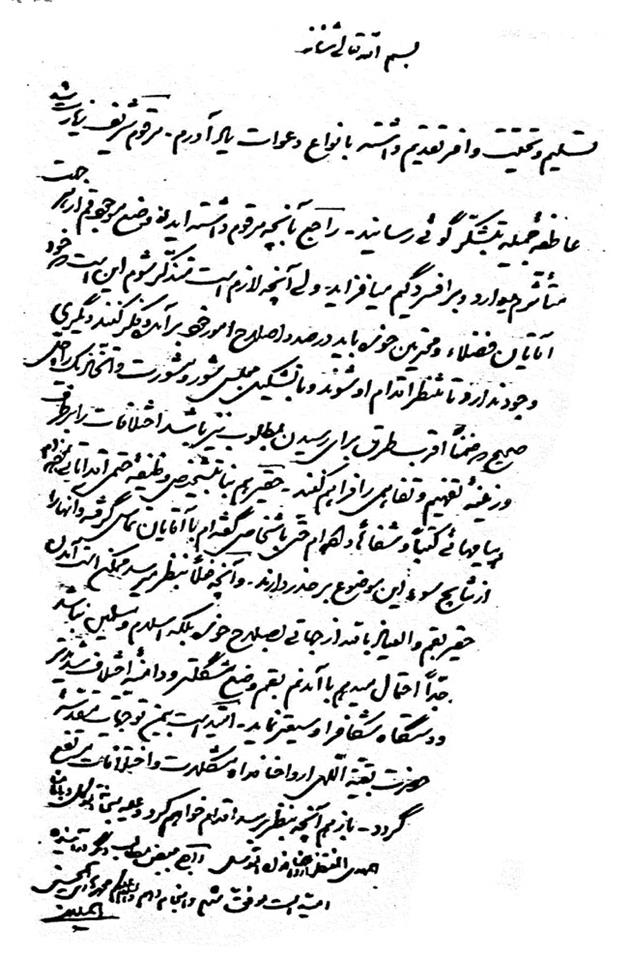 بسم الله تعالی شأنه
تسلیم و تحیت وافر تقدیم داشته با نواع دعوات یاد آورم - مرقوم شریف زیارت شد
عاطفه جمیله تشکر گوئی رسانید - راجع بآنچه مرقوم داشته اید وضع موجود قم از هر جهت
متأثرم میدارد و بر افسردگیم میافزاید - ولی آنچه لازم است متذکر شوم این است که خود
آقایان فضلاء و محترمین حوزه باید درصدد اصلاح امور خود برآمده فکر کنند دیگری
وجود ندارد تا منتظر اقدام او شوند و با تشکیل مجلس شور و مشورت و اتخاذ یک راه حل
صحیح و ضمناً اقرب طرق برای رسیدن بمطلوب نیز باشد اختلافات را برطرف
و زمینهٔ تفهیم و تفاهمی را فراهم کنند - حقیر هم بنا بتشخیص وظیفهٔ حتمی اقداماتی نموده ام
پیامهائی کتباً و شفاهاً داده ام حتی باشخاصی گفته ام با آقایان تماس گرفته و آنها را
از نتایج سوء این موضوع بر حذر دارند - و آنچه فعلاً بنظر میرسد ممکن است آمدن
حقیر بقم والعیاذ بالله از جهاتی بصلاح حوزه بلکه اسلام و مسلمین نباشد
جداً احتمال میدهم با آمدنم بقم وضع مشکلتر و دامنهٔ اختلاف شدیدتر
و دستگاه شکاف را وسیعتر نماید - امید است بیمن توجهات مقدسهٔ
حضرت بقیة اللهی ارواحنا فداه مشکلات و اختلافات مرتفع
گردد - باز هم آنچه بنظر رسد اقدام خواهم کرد
راجع ببعض مطالب دیگر در آینده
امید است موفق شوم و انجام دهم محمد هادی الحسینی
المیلانی